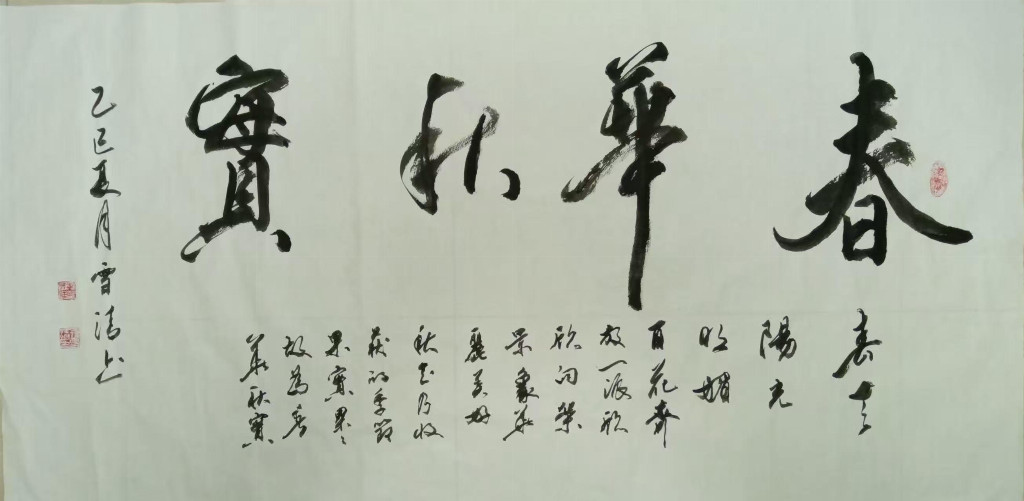 春華秋實
春天
陽光
明媚
百花齊
放一派欣
欣向榮
景象華
麗美好
秋乃收
获的季節
果實累々
故為春
華秋實
乙巳夏月雪清上